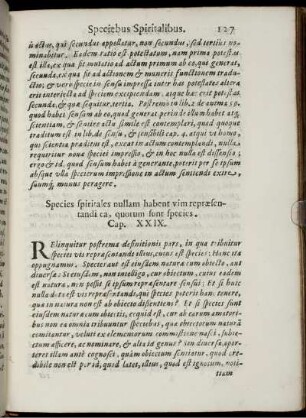 Speciebus Spiritalibus. 127
in actus, qui secundus appellatur, non secundus, sed tertius no-
minabitur. Eadem ratio est potestatum: nam prima potestas
est illa, ex qua fit mutatio ad actum primum ab eo, qui generat,
secunda, ex qua fit ad actionem & muneris functionem tradu-
ctio; & vero species in sensu impressa inter has potestates altera
interiecta ad speciem excipiendam: atque hæc erit potestas
secunda, & quæ sequitur, tertia. Postremo in lib. 2 de anima
quod habet sensum ab eo, quod generat, perinde illum habet atq;
scientiam, & sentire actu simile est contemplari, quod quoque
traditum est in lib. de sensu, & sensibili cap. 4. atqui vt homo,
qui scientia præditus est, exeat in actum contemplandi, nulla
requiritur nova specie impressio, & in hoc nulla est dissensio;
ergo & id, quod sensum habet à generante, poterit per se ipsum
absque vlla spectrum impressione in actum sentiendi exire
suumq; munus peragere.
Species spiritales nullam habent vim repræsen-
tandi ea, quorum sunt species.
Cap. XXIX.
RElinquitur postrema definitionis pars, in qua tribuitur
speciei vis repræsentandi
oppugnamus; Spectrum est eiusdem naturæ cum obiecto, aut
diversæ: Si eiusdem, non intelligo, cur obiectum, cuius eadem
est natura, non possit se ipsum repræsentare sensui: Et si huic
nulla adest vis repræsentandi, qui species poterit hanc tenere,
quæ in natura non est ab obiecto dissentiens? Et si species sunt
eiusdem naturæ cum obiecto, ecquid est, cur ab earum amotu-
ribus non ea omnia tribuuntur speciebus, quæ obiectorum naturâ
comitantur, veluti ex elementorum commistione nasci, subie-
ctum afficere, ac nominare, & alia id genus? sin diversæ, aperi-
rem illam ante cognoscit, quàm obiectum sentitur, quod cre-
dibile non est per id, quod latet, illius, quod est ignotum, noti-
tiam